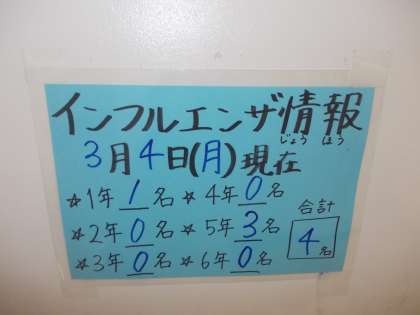 インフルエンザ情報
じょう ほう
3月4日(月)現在
☆1年 1名 ☆4年 0名
☆2年 0名 ☆5年 3名
☆3年 0名 ☆6年 0名
合計
4名